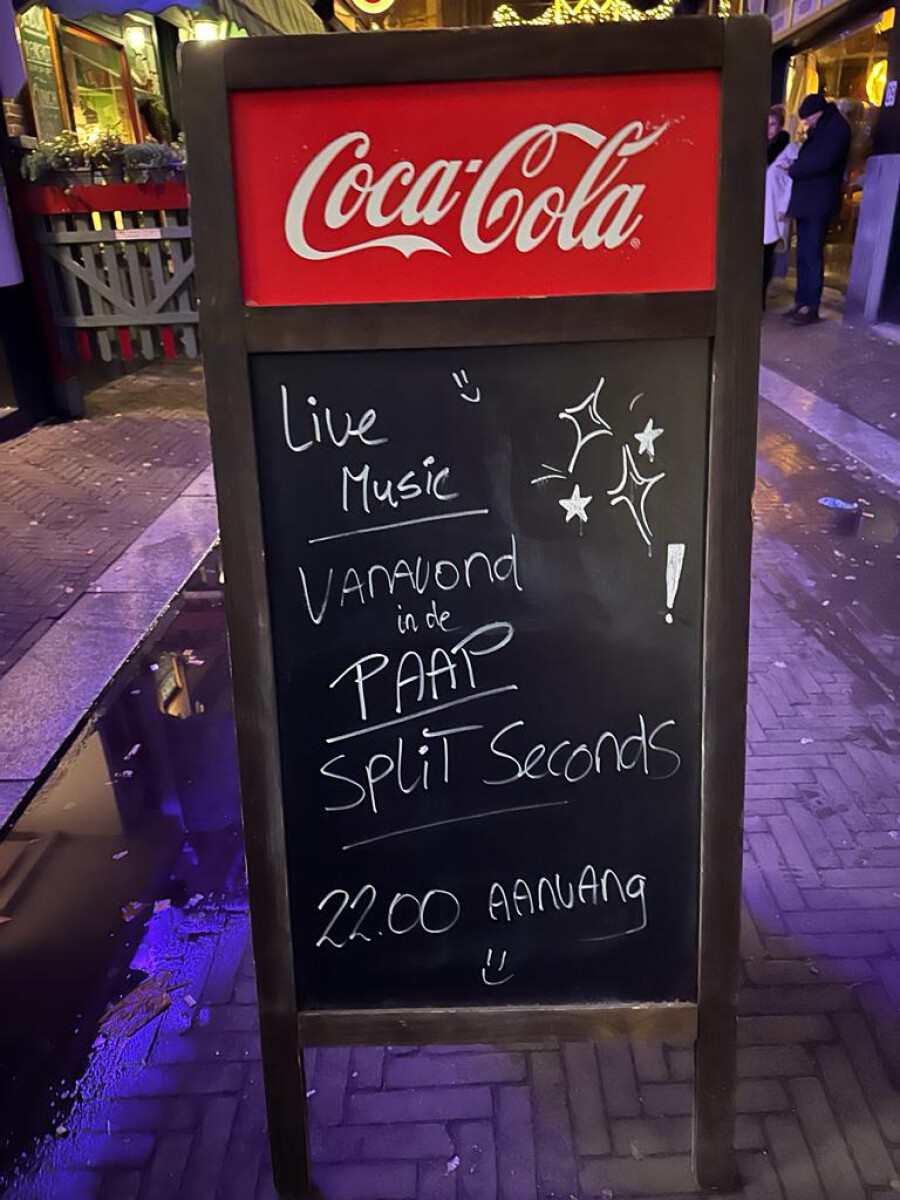 Coca-Cola
Live
Music
VANAVOND
in de
PAAP
SPLiT Seconds
!
22.00 AANVANg